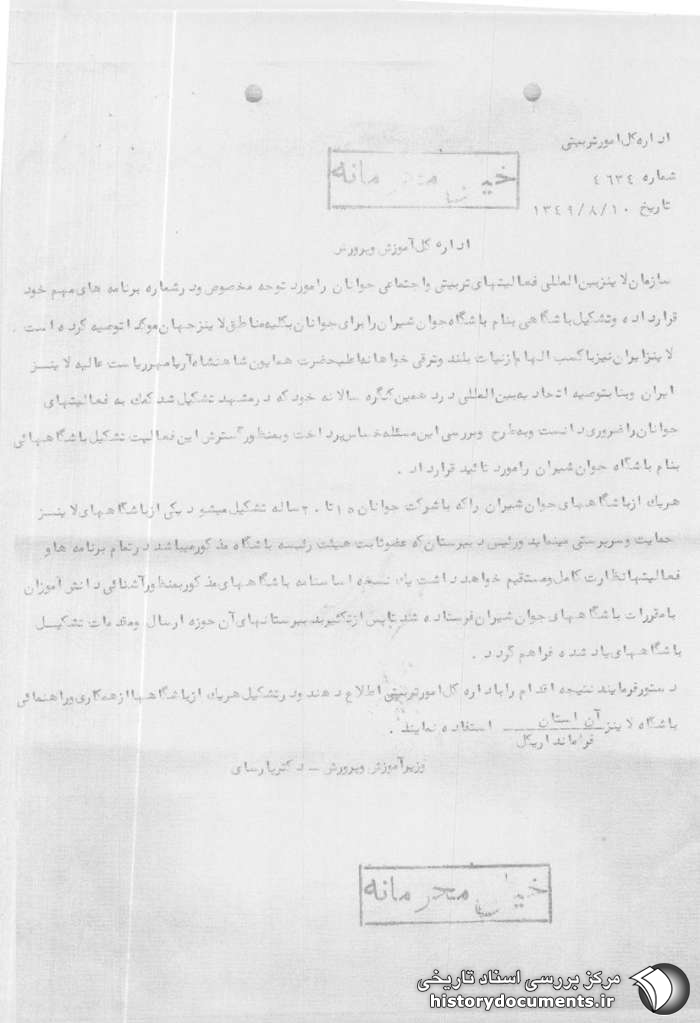 اداره کل امور تربیتی
شماره ٤٦٣٤
تاریخ ١٣٤٩/٨/١٠
خیلی محرمانه
اداره کل آموزش وپرورش
سازمان لاینزبین المللی فعالیتهای تربیتی واجتماعی جوانان رامورد توجه مخصوص ودرشماره برنامه های مهم خود
قرارداده وتشکیل باشگاهی بنام باشگاه جوان شیران رابرای جوانان بکلیه مناطق لاینزجهان موکدا توصیه کرده است .
لاینزایران نیزباکسب الهام ازنیات بلند وترقی خواهانه اعلیحضرت همایون شاهنشاه آریامهرریاست عالیه لاینــز
ایران وبنابتوصیه اتحادیه بین المللی دردهمین کنگره سالانه خودکه درمشهد تشکیل شدکمک به فعالیتهای
جوانان راضروری دانست وبه طرح وبررسی این مسئله حساس پرداخت وبمنظورگسترش این فعالیت تشکیل باشگاههائی
بنام باشگاه جوان شیران رامورد تائید قرارداد .
هریک ازباشگاههای جوان شیران راکه باشرکت جوانان ١٥ تا ٢٠ ساله تشکیل میشود یکی ازباشگاههای لاینــز
حمایت وسرپرستی مینماید ورئیس دبیرستان که عضوثابت هیئت رئیسه باشگاه مذکورمیباشد درتمام برنامه هاو
فعالیتهانظارت کامل ومستقیم خواهدداشت یک نسخه اساسنامه باشگاههای مذکوربمنظورآشنائی دانش آموزان
بامقررات باشگاههای جوان شیران فرستاده شدتاپس ازتکثیربدبیرستانهای آن حوزه ارسال ومقدمات تشکیــل
باشگاههای یادشده فراهم گردد .
دستورفرمایند نتیجه اقدام راباداره کل امورتربیتی اطلاع دهند ودرتشکیل هریک ازباشگاههاازهمکاری وراهنمائی
باشگاه لاینز آن استان استفاده نمایند .
فرمانداریکل
وزیرآموزش وپرورش ــ دکترپارسای
خیلی محرمانه
مرکز بررسی اسناد تاریخی
historydocuments.ir